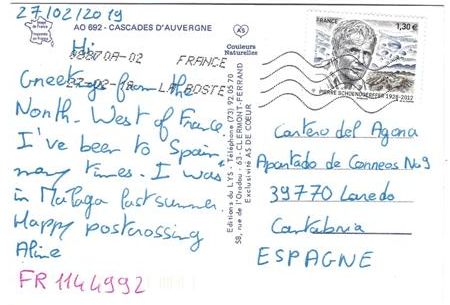 27/02/2019
AO 692 - CASCADES D'AUVERGNE
Hi
38870A-02 FRANCE
Greetings from the
LA POSTE
North-West of France.
I've been to Spain
many times. I was
in Malaga last summer.
Happy postcrossing
Aline
FR 1144992
Couleurs
Naturelles
Editions du LYS - Téléphone (73) 92 05 70
58, rue de l'Oradou - 63 - CLERMONT-FERRAND
Exclusivité AS DE COEUR
FRANCE
1,30 €
PIERRE SCHOENDOERFFER 1928-2012
Cantero del Agana
Apartado de Correos Nº9
39770 Laredo
Cantabria
ESPAGNE